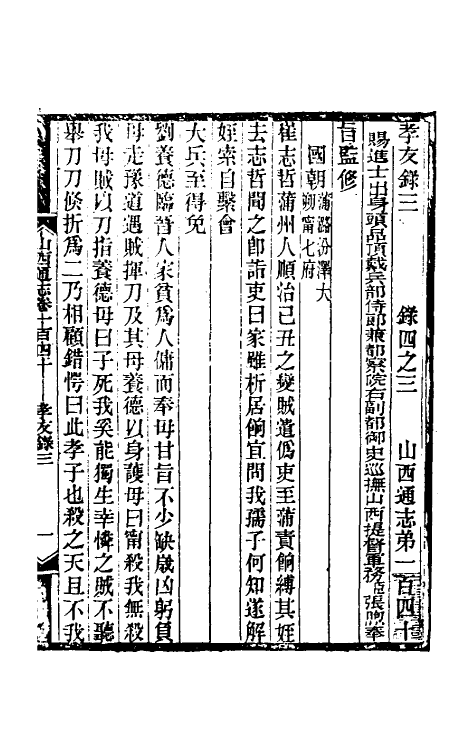 孝友錄三　錄四之三　山西通志第一百四十
賜進士出身頭品頂戴兵部侍郎兼都察院右副都御史巡撫山西提督軍務臣張煦奉
旨監修
國朝蒲潞汾澤大朔甯七府
崔志哲蒲州人順治己丑之變賊遣偽吏至蒲責餉縛其姪
去志哲聞之卽詣吏曰家雖析居餉宜問我孺子何知遂解
姪索自繫會
大兵至得免
劉養德臨晉人家貧為人傭而奉母甘旨不少缺歲凶躬負
母走豫道遇賊揮刀及其母養德以身護母曰甯殺我無殺
我母賊以刀指養德母曰子死我奚能獨生幸憐之賊不聽
舉刀刀倐折為二乃相顧錯愕曰此孝子也殺之天且不我
山西通志卷一百四十　孝友錄三　一